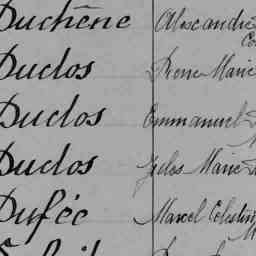 Duchêne Alexandre
Duclos Irene Marie
Duclos Emmanuel
Duclos Jules Marie
Dufée Marcel Célestin